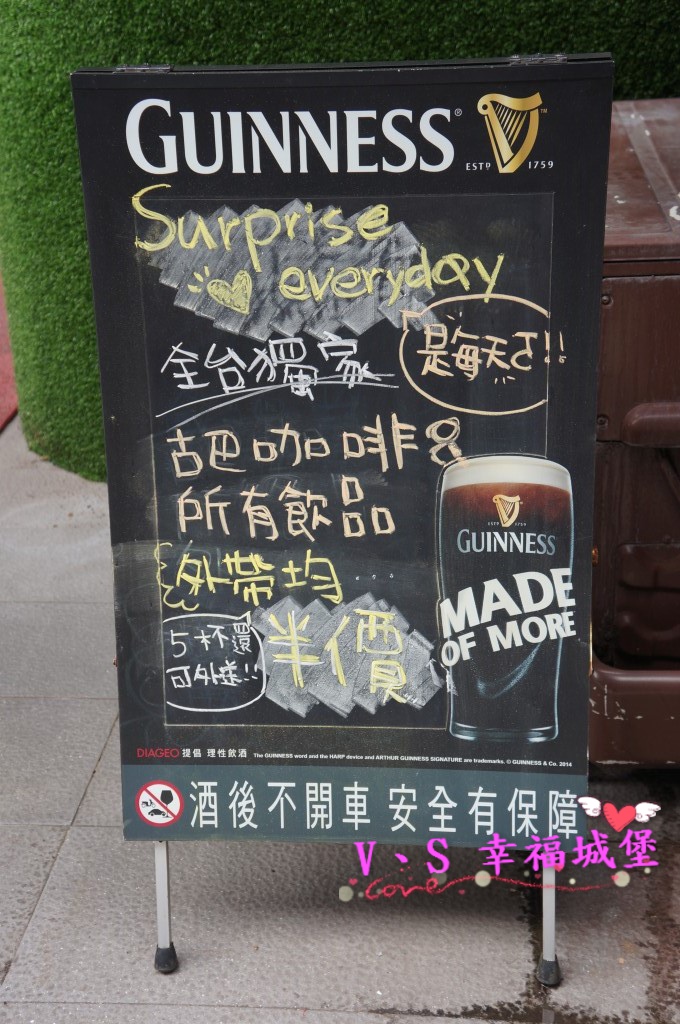 GUINNESS®
ESTD 1759 TM
Surprise
everyday
全台獨家
「是每天ㄛ!!
古巴咖啡&
所有飲品
外帶均
半價
5杯還
可外送!!
GUINNESS
MADE
OF MORE
DIAGEO 提倡 理性飲酒 The GUINNESS word and the HARP device and ARTHUR GUINNESS SIGNATURE are trademarks. © GUINNESS & Co. 2014
酒後不開車 安全有保障
V、S 幸福城堡
Love